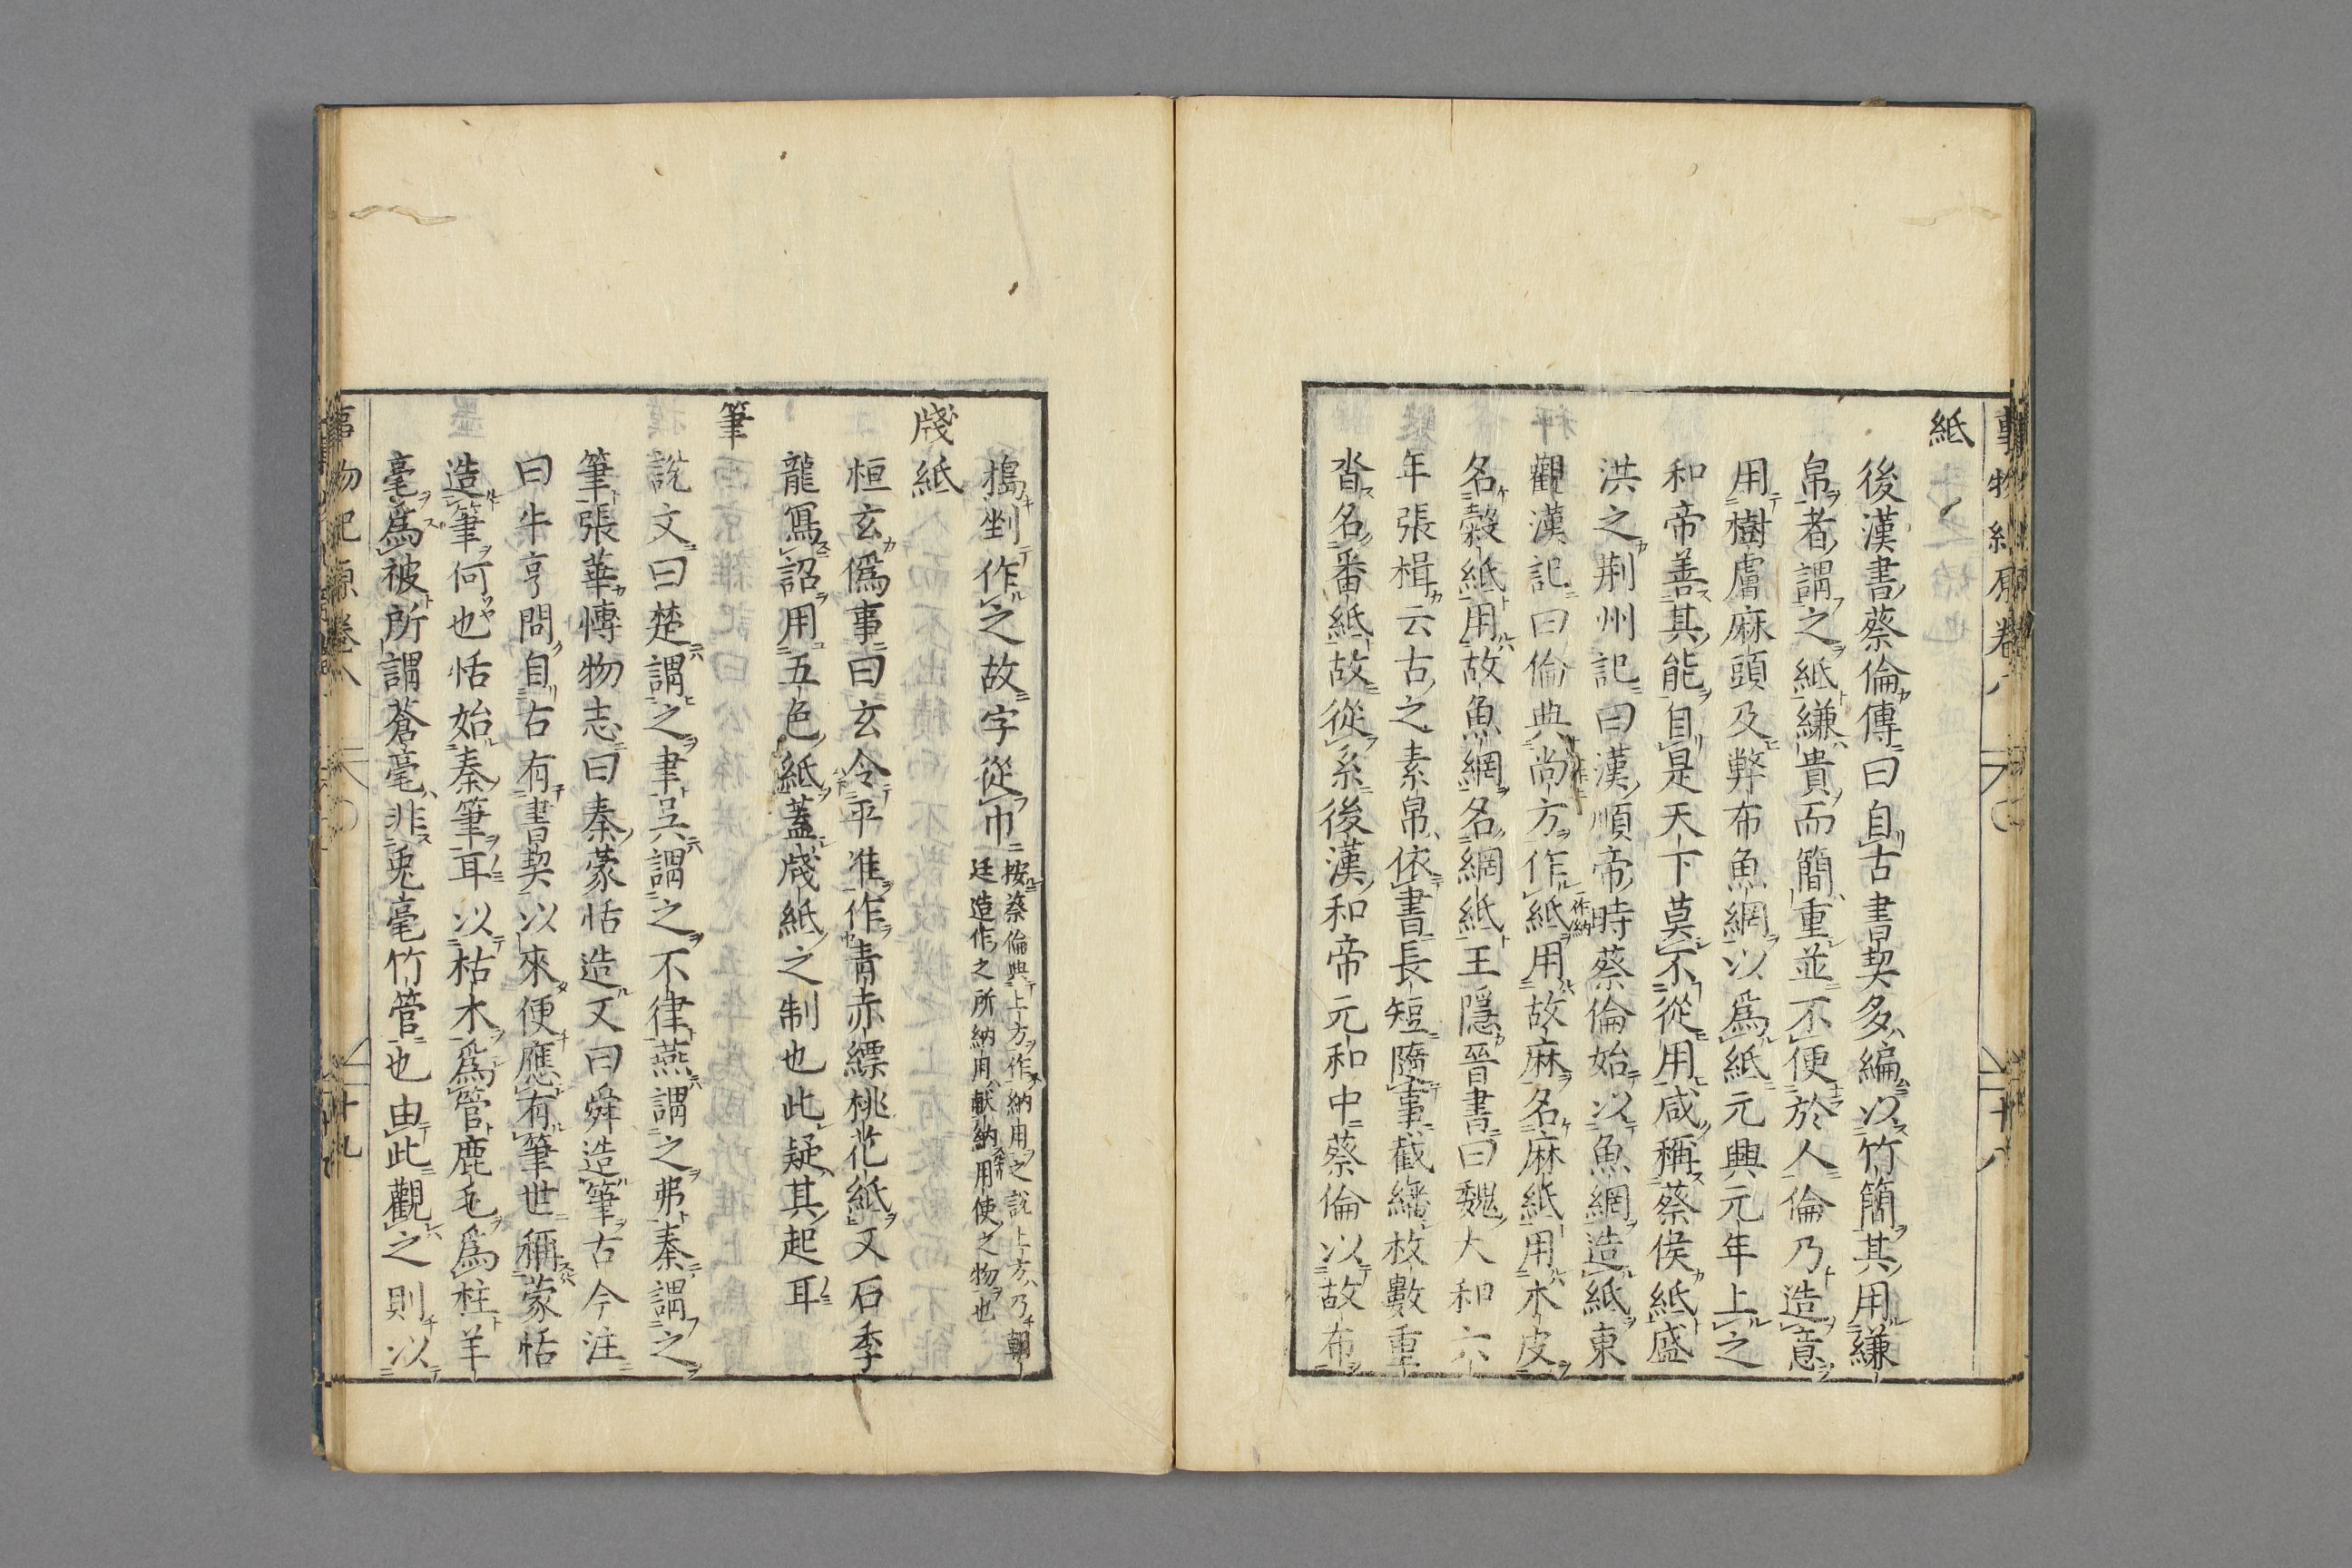 紙
後漢書蔡倫傳曰自古書契多編以竹簡其用縑
帛者謂之紙縑貴而簡重並不便於人倫乃造意
用樹膚麻頭及弊布魚網以爲紙元興元年上之
和帝善其能自是天下莫不從用咸稱蔡侯紙盛
洪之荆州記曰漢順帝時蔡倫始以魚網造紙東
觀漢記曰倫典尚方作紙用故麻名麻紙用木皮
名糓紙用故魚網名網紙王隠晉書曰魏大和六
年張楫云古之素帛依書長短隨事截縑枚數重
沓名番紙故從糸後漢和帝元和中蔡倫以故布
搗剉作之故字從巾
按蔡倫典上方作納用之說上方乃朝
廷造作之所納用献納用使之物也
牋紙
桓玄僞事曰玄令平准作青赤縹桃花紙又石季
龍寫詔用五色紙蓋牋紙之制也此疑其起耳
筆
說文曰楚謂之聿吴謂之不律燕謂之弗秦謂之
筆張華博物志曰秦蒙恬造又曰舜造筆古今注
曰牛亨問自古有書契以來便應有筆世稱蒙恬
造筆何也恬始秦筆耳以枯木爲管鹿毛爲柱羊
毫爲被所謂蒼毫非兎毫竹管也由此觀之則以
事物紀原卷八
十九